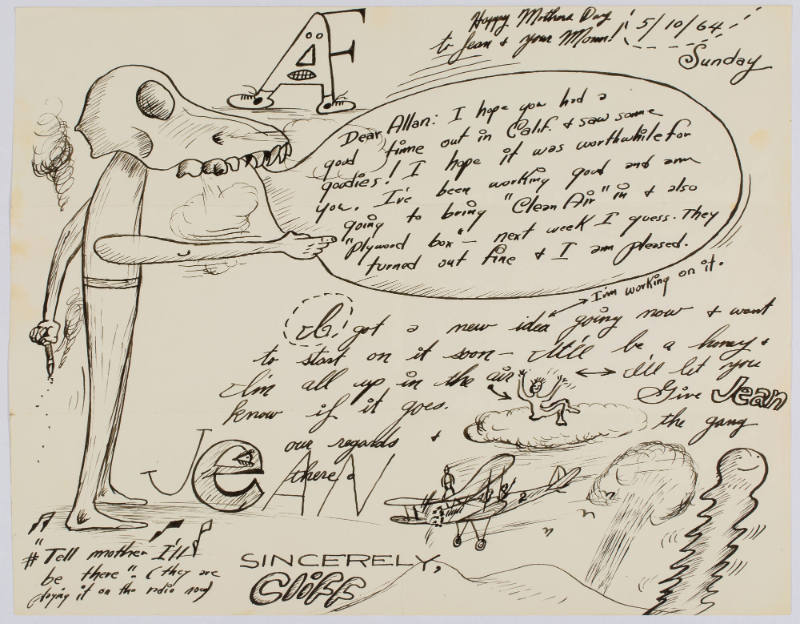 Happy Mothers Day
to Jean & your Mom!
5/10/64
Sunday
AF
Dear Allan: I hope you had a
good time out in Calif. & saw some
goodies! I hope it was worthwhile for
you. I've been working good and am
going to bring "Clean Air" in & also
"plywood box" – next week I guess. They
turned out fine & I am pleased.
I'm working on it.
I got a new idea going now & want
to start on it soon – It'll be a honey &
I'm all up in the air I'll let you
know if it goes. Give Jean
our regards & the gang
there.
JeAN
"Tell mother I'll
be there". (they are
playing it on the radio now)
SINCERELY,
Cliff